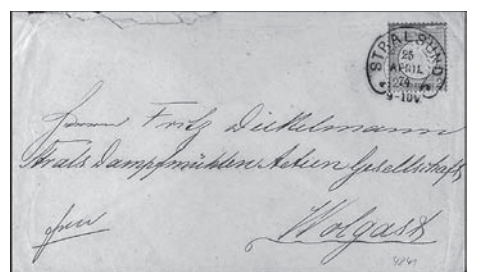 STRALSUND
25
APRIL
74
9-10V
Herrn Fritz Dickelmann
Strals Dampfmühlen Actien Gesellschaft,
Wolgast
4841